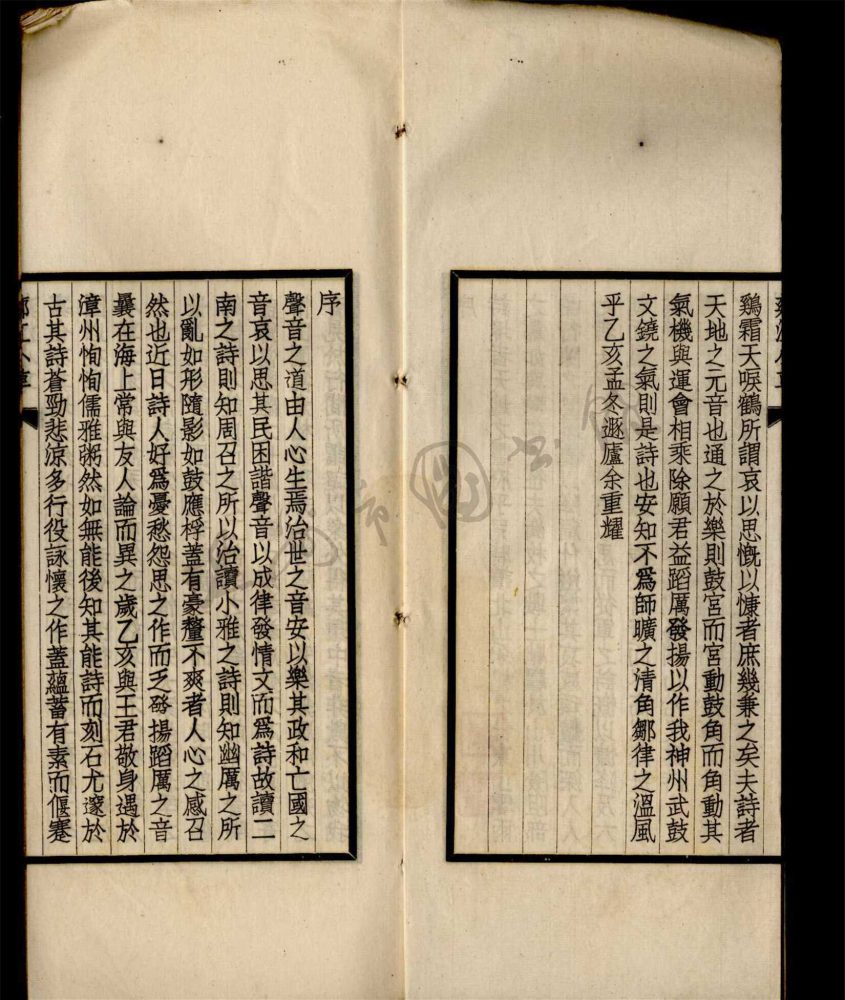 鷄霜天唳鶴所謂哀以思慨以慷者庶幾兼之矣夫詩者
天地之元音也通之於樂則鼓宮而宮動鼓角而角動其
氣機與運會相乘除願君益蹈厲發揚以作我神州武鼓
文鐃之氣則是詩也安知不爲師曠之清角鄒律之溫風
乎乙亥孟冬遯廬余重耀
序
聲音之道由人心生焉治世之音安以樂其政和亡國之
音哀以思其民困諧聲音以成律發情文而爲詩故讀二
南之詩則知周召之所以治讀小雅之詩則知幽厲之所
以亂如形隨影如鼓應桴蓋有豪釐不爽者人心之感召
然也近日詩人好爲憂愁怨思之作而乏發揚蹈厲之音
曩在海上常與友人論而異之歲乙亥與王君敬身遇於
漳州恂恂儒雅粥然如無能後知其能詩而刻石尤邃於
古其詩蒼勁悲涼多行役詠懷之作蓋蘊蓄有素而偃蹇